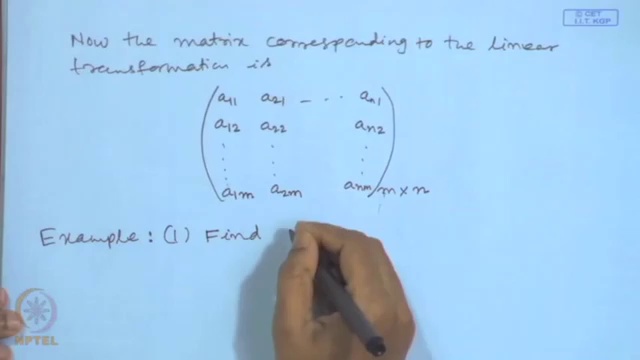 © CET
I.I.T. KGP
Now the matrix corresponding to the linear
transformation is
a11 a21 - ... an1
a12 a22 an2
⋮ ⋮ ⋮
a1m a2m anm m × n
Example: (1) Find
NPTEL